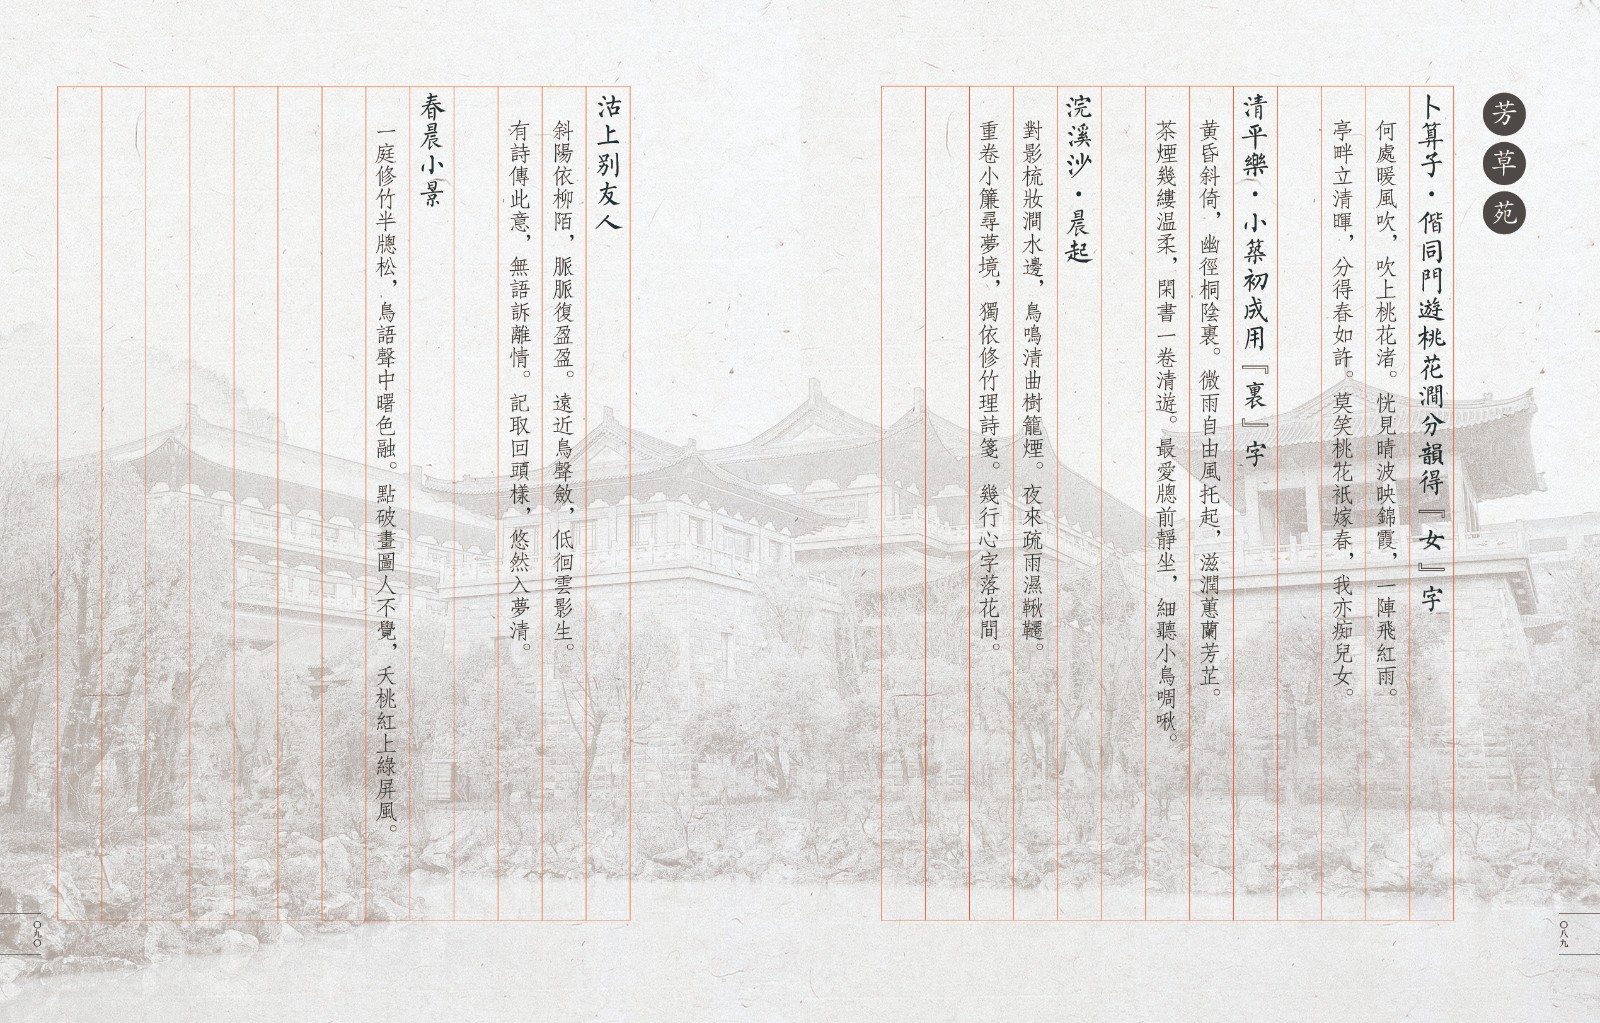 芳草苑
卜算子·偕同門遊桃花澗分韻得『女』字
何處暖風吹，吹上桃花渚。恍見晴波映錦霞，一陣飛紅雨。
亭畔立清暉，分得春如許。莫笑桃花衹嫁春，我亦痴兒女。
清平樂·小築初成用『裏』字
黃昏斜倚，幽徑桐陰裏。微雨自由風托起，滋潤蕙蘭芳芷。
茶煙幾縷温柔，閑書一卷清遊。最愛牕前靜坐，細聽小鳥啁啾。
浣溪沙·晨起
對影梳妝澗水邊，鳥鳴清曲樹籠煙。夜來疏雨濕鞦韆。
重卷小簾尋夢境，獨依修竹理詩箋。幾行心字落花間。
〇八九
沽上別友人
斜陽依柳陌，脈脈復盈盈。遠近鳥聲斂，低徊雲影生。
有詩傳此意，無語訴離情。記取回頭樣，悠然入夢清。
春晨小景
一庭修竹半牕松，鳥語聲中曙色融。點破畫圖人不覺，夭桃紅上綠屏風。
〇九〇